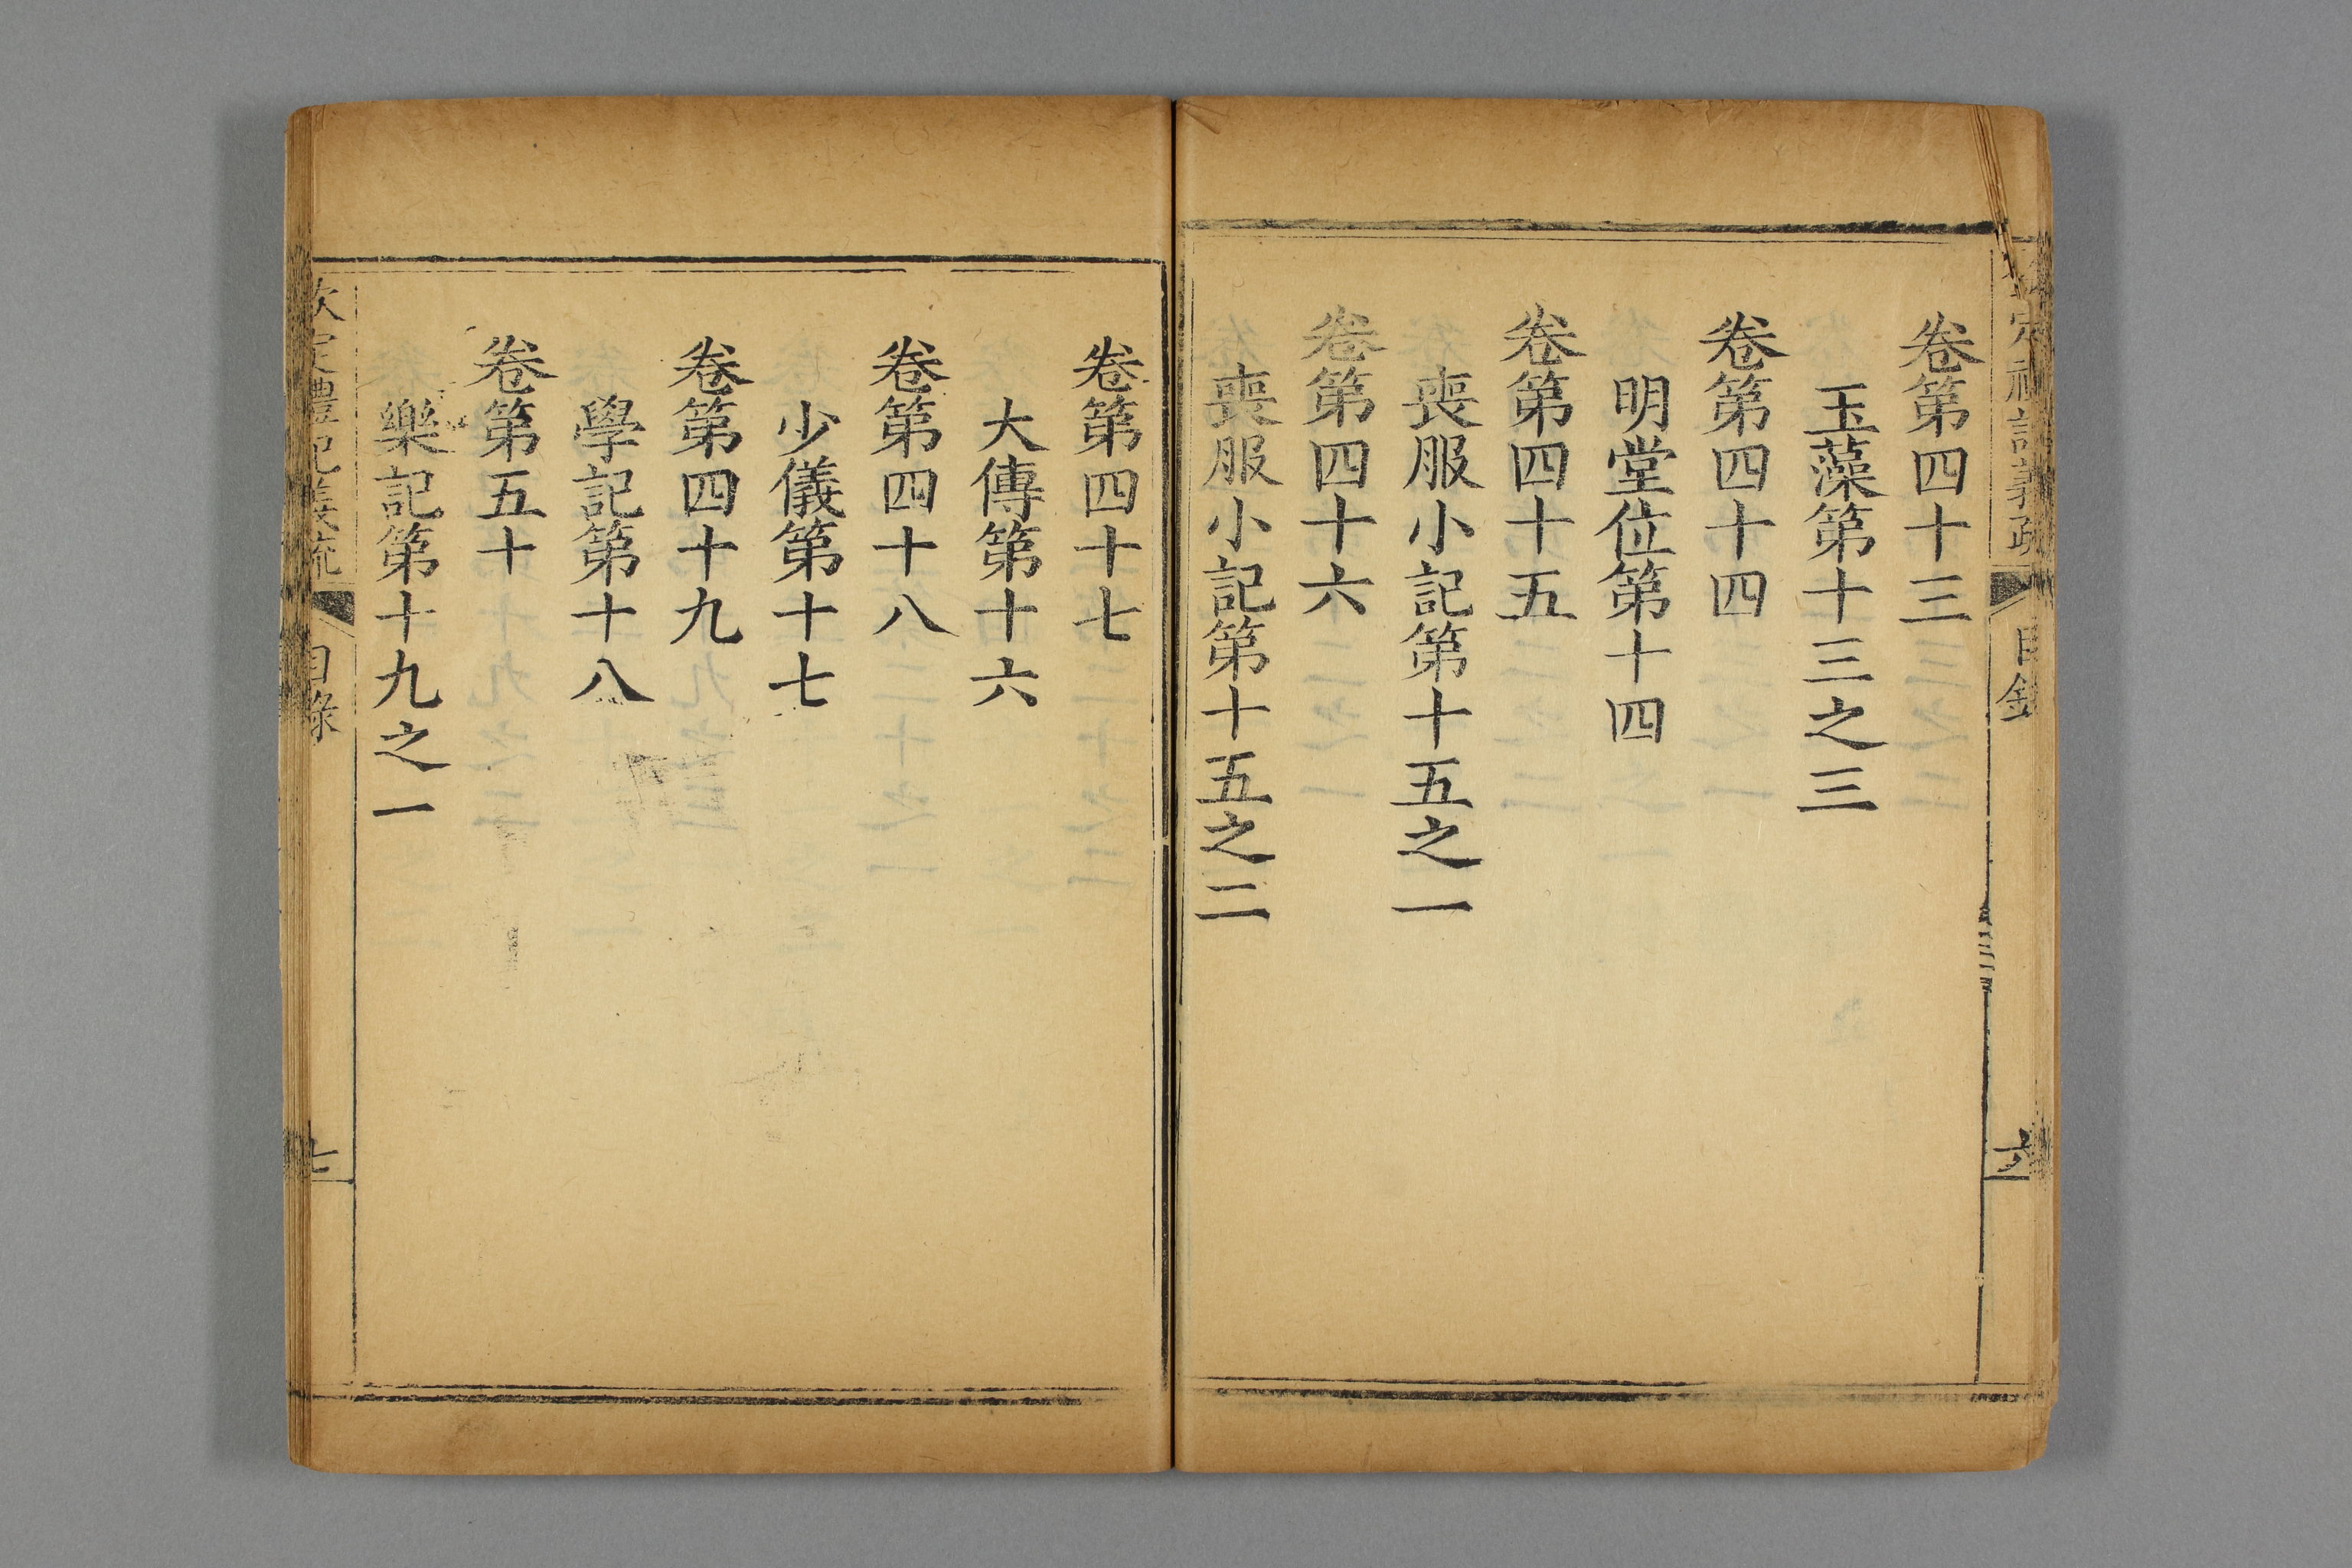 欽定禮記義疏 目錄 六
卷第四十三
玉藻第十三之三
卷第四十四
明堂位第十四
卷第四十五
喪服小記第十五之一
卷第四十六
喪服小記第十五之二
卷第四十七
大傳第十六
卷第四十八
少儀第十七
卷第四十九
學記第十八
卷第五十
樂記第十九之一
欽定禮記義疏 目錄 七